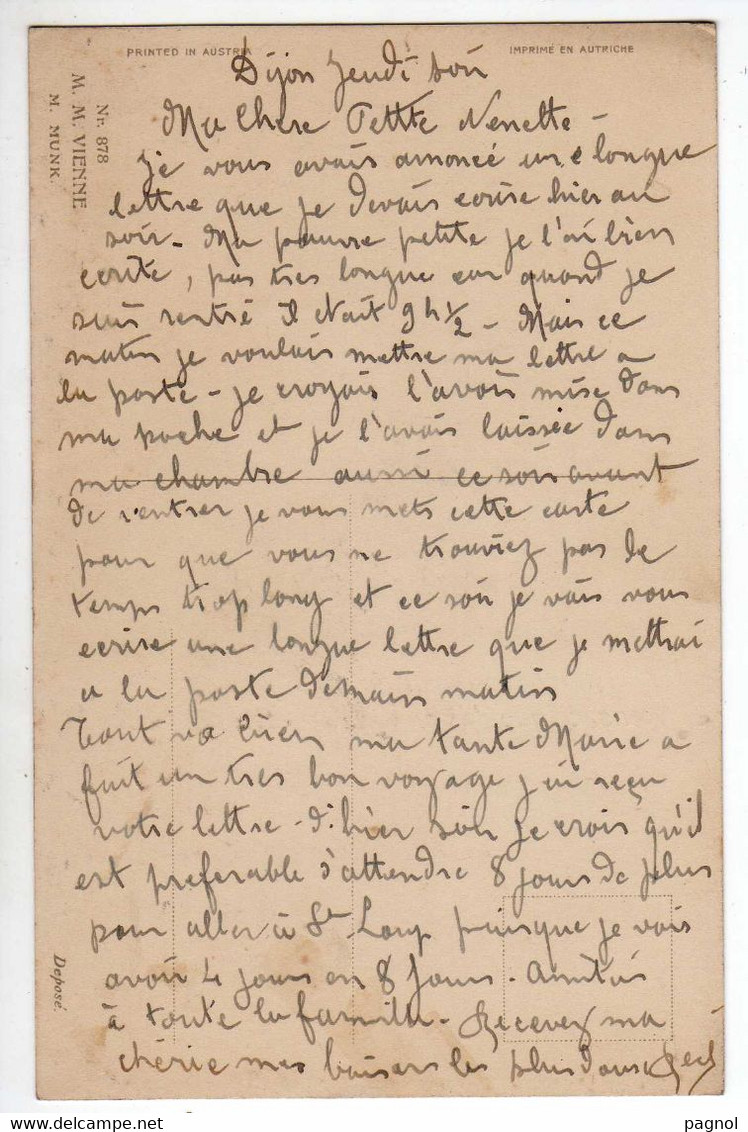 PRINTED IN AUSTRIA
IMPRIMÉ EN AUTRICHE
Nr. 878
M. M. VIENNE
M. MUNK.
Deposé.
Dijon Jeudi soir
Ma Chere Petite Nenette -
je vous avais annoncé une longue
lettre que je devais ecrire hier au
soir - Ma pauvre petite je l'ai bien
ecrite, pas tres longue car quand je
suis rentré il etait 9h 1/2 - Mais ce
matin je voulais mettre ma lettre a
la poste - je croyais l'avoir mise dans
ma poche et je l'avais laissée dans
ma chambre aussi ce soir avant
de rentrer je vous mets cette carte
pour que vous ne trouviez pas le
temps trop long et ce soir je vais vous
ecrire une longue lettre que je mettrai
a la poste demain matin
Tout va bien ma tante Marie a
fait un tres bon voyage j'ai reçu
votre lettre d'hier soir je crois qu'il
est preferable d'attendre 8 jours de plus
pour aller à St Loup puisque je vais
avoir 4 jours en 8 jours - Amitiés
à toute la famille - Recevez ma
chérie mes baisers les plus doux
pagnol